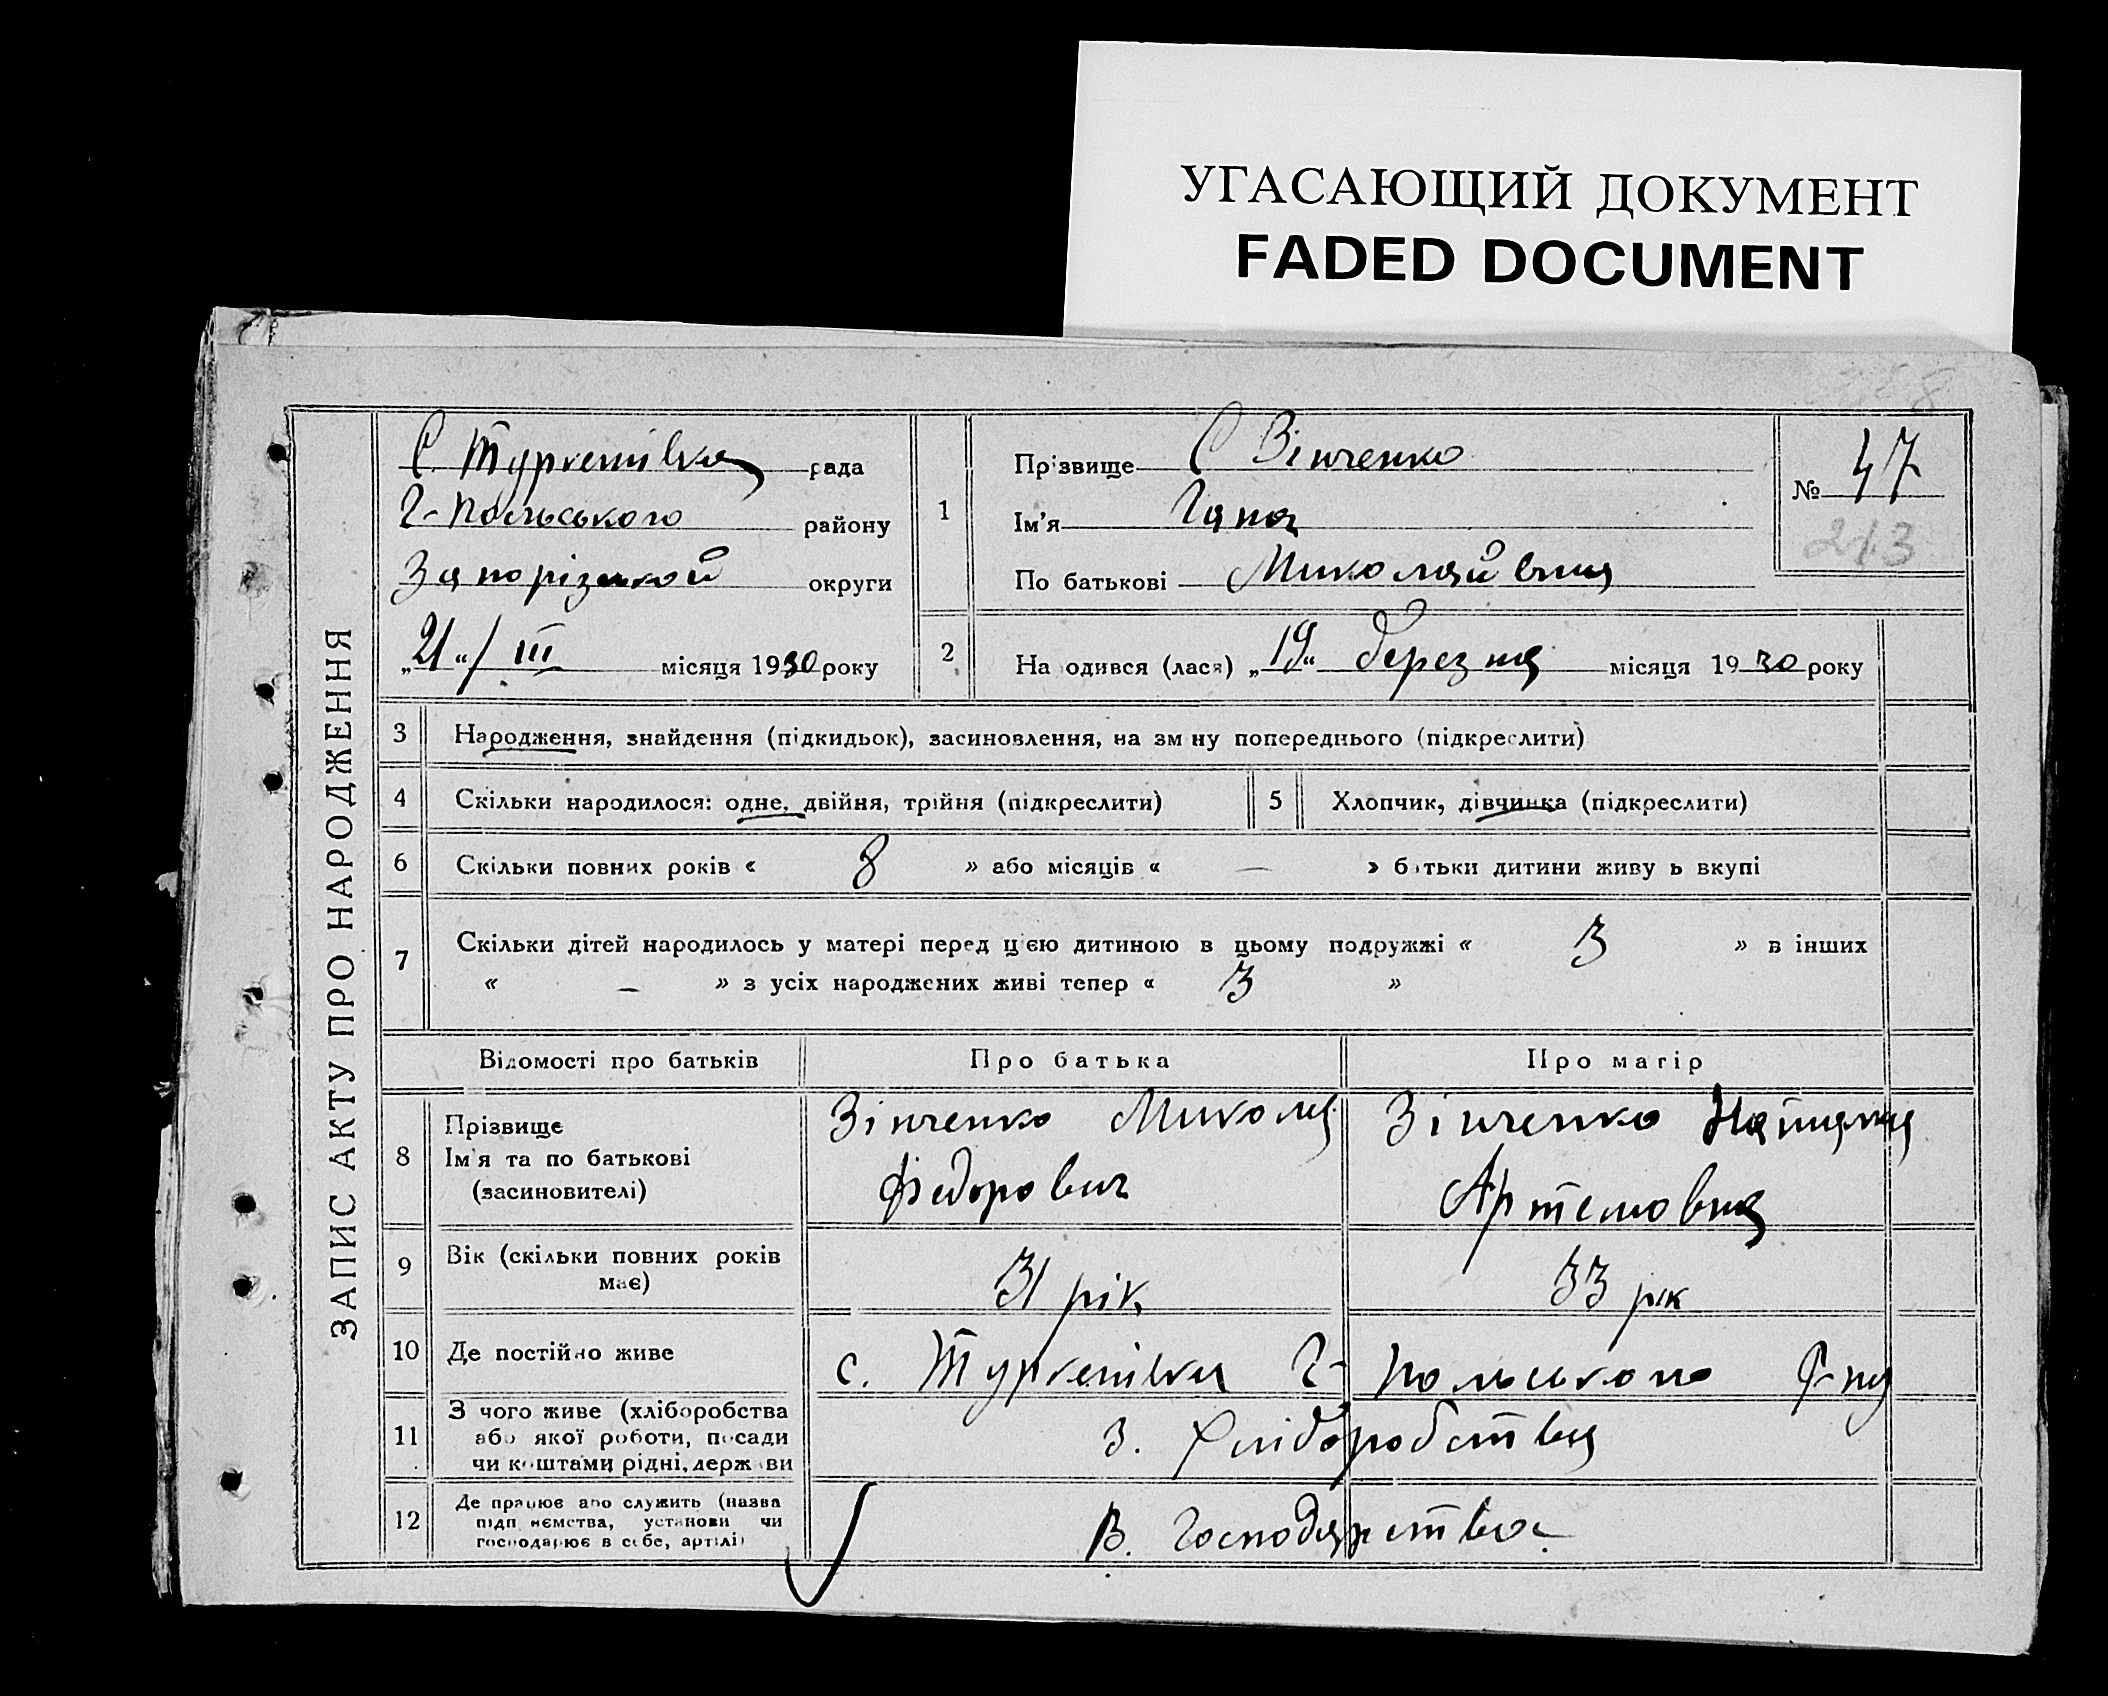 УГАСАЮЩИЙ ДОКУМЕНТ
FADED DOCUMENT
ЗАПИС АКТУ ПРО НАРОДЖЕННЯ
С. Туркенівка рада
Г-Польського району
Запорізькой округи
„21“ / III місяця 1930 року
1
Прізвище Зінченко
Ім'я Гана
По батькові Миколаївна
№ 47
213
2 На одився (лася) „19“ березня місяця 1930 року
3 Народження, знайдення (підкидьок), засиновлення, на зм ну попереднього (підкреслити)
4 Скільки народилося: одне, двійня, трійня (підкреслити) 5 Хлопчик, дівчинка (підкреслити)
6 Скільки повних років « 8 » або місяців « — » батьки дитини живу ь вкупі
7 Скільки дітей народилось у матері перед цією дитиною в цьому подружжі « 3 » в інших
« — » з усіх народжених живі тепер « 3 »
Відомості про батьків Про батька Про матір
8 Прізвище
Ім'я та по батькові
(засиновителі)
Зінченко Микола
Федорович
Зінченко Наталка
Артемовна
9 Вік (скільки повних років
має)
31 рік
33 рік
10 Де постійно живе с. Туркенівка Г-Польського Р-ну
11 З чого живе (хліборобства
або якої роботи, посади
чи коштами рідні, держави
З. Хліборобства
12 Де працює або служить (назва
підп иємства, установи чи
господарює в себе, артілі)
В. Господарства